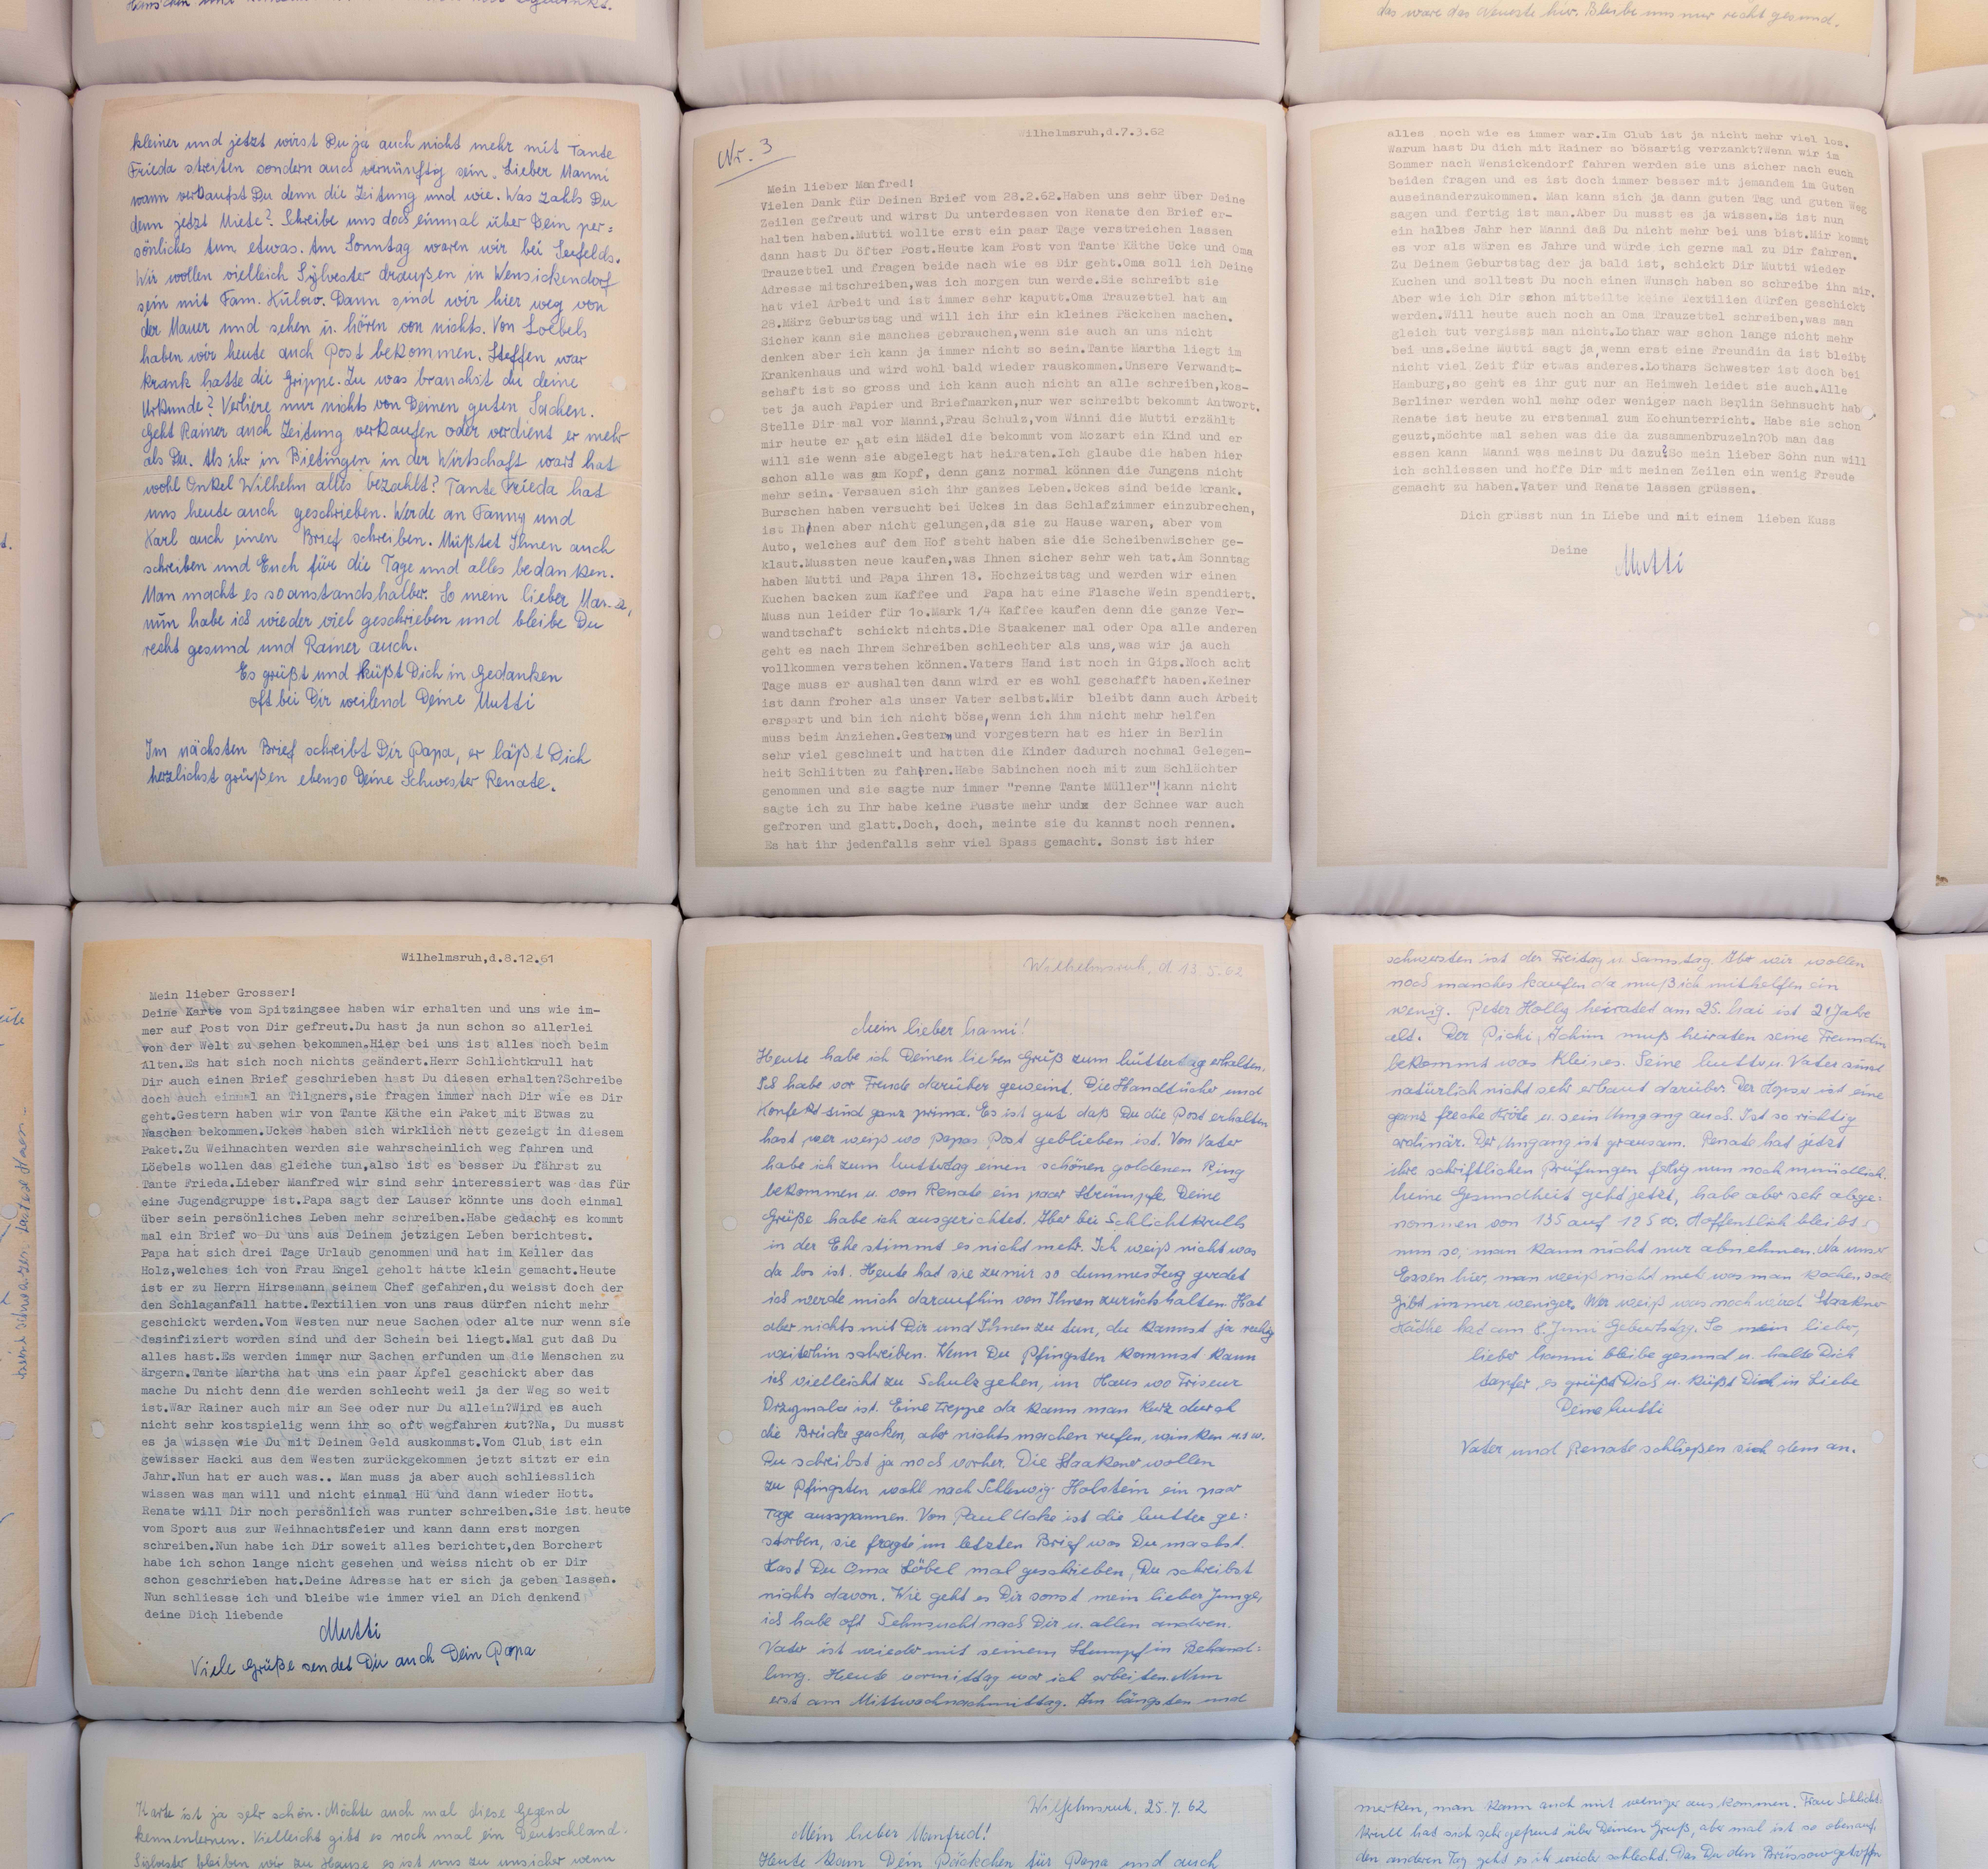 das wäre das Neueste hier. Bleibe uns nur recht gesund.
kleiner und jetzt wirst Du ja auch nicht mehr mit Tante
Frieda streiten sondern auch vernünftig sein. Lieber Manni
wann verkaufst Du denn die Zeitung und wie. Was zahls Du
denn jetzt Miete? Schreibe uns doch einmal über Dein per=
sönliches tun etwas. Am Sonntag waren wir bei Seefelds.
Wir wollen vielleich Sylvester draußen in Wensickendorf
sein mit Fam. Külow. Dann sind wir hier weg von
der Mauer und sehen u. hören von nichts. Von Loebels
haben wir heute auch Post bekommen. Steffen war
krank hatte die Grippe. Zu was brauchst du deine
Urkunde? Verliere nur nichts von Deinen guten Sachen.
Geht Rainer auch Zeitung verkaufen oder verdient er mehr
als Du. Als ihr in Bietingen in der Wirtschaft wart hat
wohl Onkel Wilhelm alles bezahlt? Tante Frieda hat
uns heute auch geschrieben. Werde an Fanny und
Karl auch einen Brief schreiben. Müßtet Ihnen auch
schreiben und Euch für die Tage und alles bedanken.
Man macht es so anstandshalber. So mein lieber
nun habe ich wieder viel geschrieben und bleibe Du
recht gesund und Rainer auch.
Es grüßt und küßt Dich in Gedanken
oft bei Dir weilend Deine Mutti
Im nächsten Brief schreibt Dir Papa, er läßt Dich
herzlichst grüßen ebenso Deine Schwester Renate.
Nr. 3
Wilhelmsruh,d.7.3.62
Mein lieber Manfred!
Vielen Dank für Deinen Brief vom 28.2.62.Haben uns sehr über Deine
Zeilen gefreut und wirst Du unterdessen von Renate den Brief er-
halten haben.Mutti wollte erst ein paar Tage verstreichen lassen
dann hast Du öfter Post.Heute kam Post von Tante Käthe Ucke und Oma
Trauzettel und fragen beide nach wie es Dir geht.Oma soll ich Deine
Adresse mitschreiben,was ich morgen tun werde.Sie schreibt sie
hat viel Arbeit und ist immer sehr kaputt.Oma Trauzettel hat am
28.März Geburtstag und will ich ihr ein kleines Päckchen machen.
Sicher kann sie manches gebrauchen,wenn sie auch an uns nicht
denken aber ich kann ja immer nicht so sein.Tante Martha liegt im
Krankenhaus und wird wohl bald wieder rauskommen.Unsere Verwandt-
schaft ist so gross und ich kann auch nicht an alle schreiben,kos-
tet ja auch Papier und Briefmarken,nur wer schreibt bekommt Antwort.
Stelle Dir mal vor Manni,Frau Schulz,vom Winni die Mutti erzählt
mir heute er hat ein Mädel die bekommt vom Mozart ein Kind und er
will sie wenn sie abgelegt hat heiraten.Ich glaube die haben hier
schon alle was am Kopf, denn ganz normal können die Jungens nicht
mehr sein. Versauen sich ihr ganzes Leben.Uckes sind beide krank.
Burschen haben versucht bei Uckes in das Schlafzimmer einzubrechen,
ist Ihnen aber nicht gelungen,da sie zu Hause waren, aber vom
Auto, welches auf dem Hof steht haben sie die Scheibenwischer ge-
klaut.Mussten neue kaufen,was Ihnen sicher sehr weh tat.Am Sonntag
haben Mutti und Papa ihren 18. Hochzeitstag und werden wir einen
Kuchen backen zum Kaffee und Papa hat eine Flasche Wein spendiert.
Muss nun leider für 1o.Mark 1/4 Kaffee kaufen denn die ganze Ver-
wandtschaft schickt nichts.Die Staakener mal oder Opa alle anderen
geht es nach Ihrem Schreiben schlechter als uns,was wir ja auch
vollkommen verstehen können.Vaters Hand ist noch in Gips.Noch acht
Tage muss er aushalten dann wird er es wohl geschafft haben.Keiner
ist dann froher als unser Vater selbst.Mir bleibt dann auch Arbeit
erspart und bin ich nicht böse,wenn ich ihm nicht mehr helfen
muss beim Anziehen.Gestern und vorgestern hat es hier in Berlin
sehr viel geschneit und hatten die Kinder dadurch nochmal Gelegen-
heit Schlitten zu fahren.Habe Sabinchen noch mit zum Schlächter
genommen und sie sagte nur immer "renne Tante Müller"!kann nicht
sagte ich zu Ihr habe keine Pusste mehr und der Schnee war auch
gefroren und glatt.Doch, doch, meinte sie du kannst noch rennen.
Es hat ihr jedenfalls sehr viel Spass gemacht. Sonst ist hier
alles noch wie es immer war.Im Club ist ja nicht mehr viel los.
Warum hast Du dich mit Rainer so bösartig verzankt?Wenn wir im
Sommer nach Wensickendorf fahren werden sie uns sicher nach euch
beiden fragen und es ist doch immer besser mit jemandem im Guten
auseinanderzukommen. Man kann sich ja dann guten Tag und guten Weg
sagen und fertig ist man.Aber Du musst es ja wissen.Es ist nun
ein halbes Jahr her Manni daß Du nicht mehr bei uns bist.Mir kommt
es vor als wären es Jahre und würde ich gerne mal zu Dir fahren.
Zu Deinem Geburtstag der ja bald ist, schickt Dir Mutti wieder
Kuchen und solltest Du noch einen Wunsch haben so schreibe ihn mir.
Aber wie ich Dir schon mitteilte keine Textilien dürfen geschickt
werden.Will heute auch noch an Oma Trauzettel schreiben,was man
gleich tut vergisst man nicht.Lothar war schon lange nicht mehr
bei uns.Seine Mutti sagt ja,wenn erst eine Freundin da ist bleibt
nicht viel Zeit für etwas anderes.Lothars Schwester ist doch bei
Hamburg,so geht es ihr gut nur an Heimweh leidet sie auch.Alle
Berliner werden wohl mehr oder weniger nach Berlin Sehnsucht hab
Renate ist heute zu erstenmal zum Kochunterricht. Habe sie schon
geuzt,möchte mal sehen was die da zusammenbruzeln?Ob man das
essen kann Manni was meinst Du dazu?So mein lieber Sohn nun will
ich schliessen und hoffe Dir mit meinen Zeilen ein wenig Freude
gemacht zu haben.Vater und Renate lassen grüssen.
Dich grüsst nun in Liebe und mit einem lieben Kuss
Deine Mutti
Wilhelmsruh,d.8.12.61
Mein lieber Grosser!
Deine Karte vom Spitzingsee haben wir erhalten und uns wie im-
mer auf Post von Dir gefreut.Du hast ja nun schon so allerlei
von der Welt zu sehen bekommen.Hier bei uns ist alles noch beim
Alten.Es hat sich noch nichts geändert.Herr Schlichtkrull hat
Dir auch einen Brief geschrieben hast Du diesen erhalten?Schreibe
doch auch einmal an Tilgners,sie fragen immer nach Dir wie es Dir
geht.Gestern haben wir von Tante Käthe ein Paket mit Etwas zu
Naschen bekommen.Uckes haben sich wirklich nett gezeigt in diesem
Paket.Zu Weihnachten werden sie wahrscheinlich weg fahren und
Löebels wollen das gleiche tun,also ist es besser Du fährst zu
Tante Frieda.Lieber Manfred wir sind sehr interessiert was das für
eine Jugendgruppe ist.Papa sagt der Lauser könnte uns doch einmal
über sein persönliches Leben mehr schreiben.Habe gedacht es kommt
mal ein Brief wo Du uns aus Deinem jetzigen Leben berichtest.
Papa hat sich drei Tage Urlaub genommen und hat im Keller das
Holz,welches ich von Frau Engel geholt hatte klein gemacht.Heute
ist er zu Herrn Hirsemann seinem Chef gefahren,du weisst doch der
den Schlaganfall hatte.Textilien von uns raus dürfen nicht mehr
geschickt werden.Vom Westen nur neue Sachen oder alte nur wenn sie
desinfiziert worden sind und der Schein bei liegt.Mal gut daß Du
alles hast.Es werden immer nur Sachen erfunden um die Menschen zu
ärgern.Tante Martha hat uns ein paar Äpfel geschickt aber das
mache Du nicht denn die werden schlecht weil ja der Weg so weit
ist.War Rainer auch mir am See oder nur Du allein?Wird es auch
nicht sehr kostspielig wenn ihr so oft wegfahren tut?Na, Du musst
es ja wissen wie Du mit Deinem Geld auskommst.Vom Club ist ein
gewisser Hacki aus dem Westen zurückgekommen jetzt sitzt er ein
Jahr.Nun hat er auch was.. Man muss ja aber auch schliesslich
wissen was man will und nicht einmal Hü und dann wieder Hott.
Renate will Dir noch persönlich was runter schreiben.Sie ist heute
vom Sport aus zur Weihnachtsfeier und kann dann erst morgen
schreiben.Nun habe ich Dir soweit alles berichtet,den Borchert
habe ich schon lange nicht gesehen und weiss nicht ob er Dir
schon geschrieben hat.Deine Adresse hat er sich ja geben lassen.
Nun schliesse ich und bleibe wie immer viel an Dich denkend
deine Dich liebende
Mutti
Viele Grüße sendet Dir auch Dein Papa
Wilhelmsruh, d 13.5.62
Mein lieber Manni!
Heute habe ich Deinen lieben Gruß zum Muttertag erhalten.
Ich habe vor Freude darüber geweint. Die Handtücher und
Konfekt sind ganz prima. Es ist gut daß Du die Post erhalten
hast, wer weiß wo Papas Post geblieben ist. Von Vater
habe ich zum Muttertag einen schönen goldenen Ring
bekommen u. von Renate ein paar Strümpfe. Deine
Grüße habe ich ausgerichtet. Aber bei Schlichtkrulls
in der Ehe stimmt es nicht mehr. Ich weiß nicht was
da los ist. Heute hat sie zu mir so dummes Zeug geredet
ich werde mich daraufhin von Ihnen zurückhalten. Hat
aber nichts mit Dir und Ihnen zu tun, du kannst ja ruhig
weiterhin schreiben. Wenn Du Pfingsten kommst kann
ich vielleicht zu Schulz gehen, im Haus wo Friseur
ist. Eine Treppe da kann man kurz durch
die Brücke gucken, aber nichts machen rufen, winken u.s.w.
Du schreibst ja noch vorher. Die Staakener wollen
zu Pfingsten wohl nach Schleswig Holstein ein paar
Tage ausspannen. Von Paul Ucke ist die Mutter ge:
storben, sie fragte im letzten Brief was Du machst.
Hast Du Oma Löbel mal geschrieben, Du schreibst
nichts davon. Wie geht es Dir sonst mein lieber Junge,
ich habe oft Sehnsucht nach Dir u. allen anderen.
Vater ist wieder mit seinem Stumpf in Behand:
lung. Heute vormittag war ich arbeiten. Nun
erst am Mittwochnachmittag. Am längsten und
schwersten ist der Freitag u. Samstag. Aber wir wollen
noch manches kaufen da muß ich mithelfen ein
wenig. Peter Holly heiratet am 25. Mai ist 21 Jahre
alt. Der Pichi, Achim muß heiraten seine Freundin
bekommt was kleines. Seine Mutter u. Vater sind
natürlich nicht sehr erbaut darüber. Der ist eine
ganz freche Kröte u. sein Umgang auch. Ist so richtig
ordinär. Der Umgang ist grausam. Renate hat jetzt
ihre schriftlichen Prüfungen fertig nun noch mündlich.
Meine Gesundheit geht jetzt, habe aber sehr abge:
nommen von 135 auf 125 Hoffentlich bleibt
nun so, man kann nicht nur abnehmen. Na unser
Essen hier, man weiß nicht mehr was man kochen soll
gibt immer weniger. Wer weiß was noch wird. Staakner
Käthe hat am 8. Juni Geburtstag. So mein lieber,
lieber Manni bleibe gesund u. halte Dich
tapfer, es grüßt Dich u. küßt Dich in Liebe
Deine Mutti
Vater und Renate schließen sich dem an.
Karte ist ja sehr schön. Möchte auch mal diese Gegend
kennenlernen. Vielleicht gibt es noch mal ein Deutschland.
Sylvester bleiben wir zu Hause es ist uns zu unsicher wenn
Wilhelmsruh, 25.7.62
Mein lieber Manfred!
Heute kam Dein Päckchen für Papa und auch
merken, man kann auch mit weniger aus kommen. Frau Schlicht
krull hat sich sehr gefreut über Deinen Gruß, aber mal ist sie obenauf,
den anderen Tag geht es ihr wieder schlecht. Das Du den Brüssow getroffen